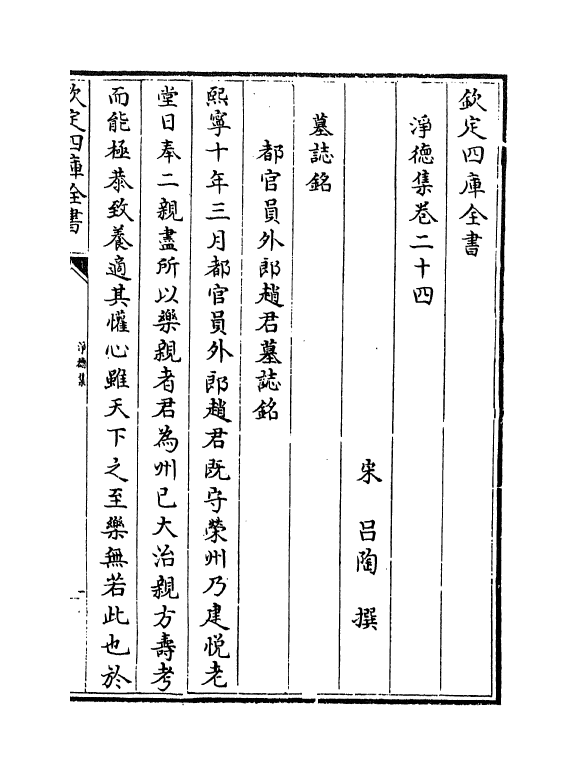 欽定四庫全書
淨徳集卷二十四
宋 吕陶 撰
墓誌銘
都官員外郎趙君墓誌銘
熙寧十年三月都官員外郎趙君既守榮州乃建悅老
堂日奉二親盡所以樂親者君為州已大治親方壽考
而能極恭致養適其懽心雖天下之至樂無若此也於
欽定四庫全書
淨徳集
一